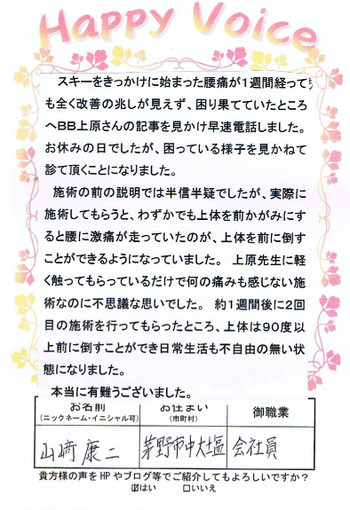 Happy Voice
スキーをきっかけに始まった腰痛が1週間経っても
も全く改善の兆しが見えず、困り果てていたところ
へBB上原さんの記事を見かけ早速電話しました。
お休みの日でしたが、困っている様子を見かねて
診て頂くことになりました。
施術の前の説明では半信半疑でしたが、実際に
施術してもらうと、わずかでも上体を前かがみにす
ると腰に激痛が走っていたのが、上体を前に倒す
ことができるようになっていました。 上原先生に軽
く触ってもらっているだけで何の痛みも感じない施
術なのに不思議な思いでした。 約1週間後に2回
目の施術を行ってもらったところ、上体は90度以
上前に倒すことができ日常生活も不自由の無い状
態になりました。
本当に有難うございました。
お名前 お住まい 御職業
(ニックネーム・イニシャル可) (市町村)
山崎 康二 茅野市中大塩 会社員
貴方様の声をHPやブログ等でご紹介してもよろしいですか?
☑はい □いいえ